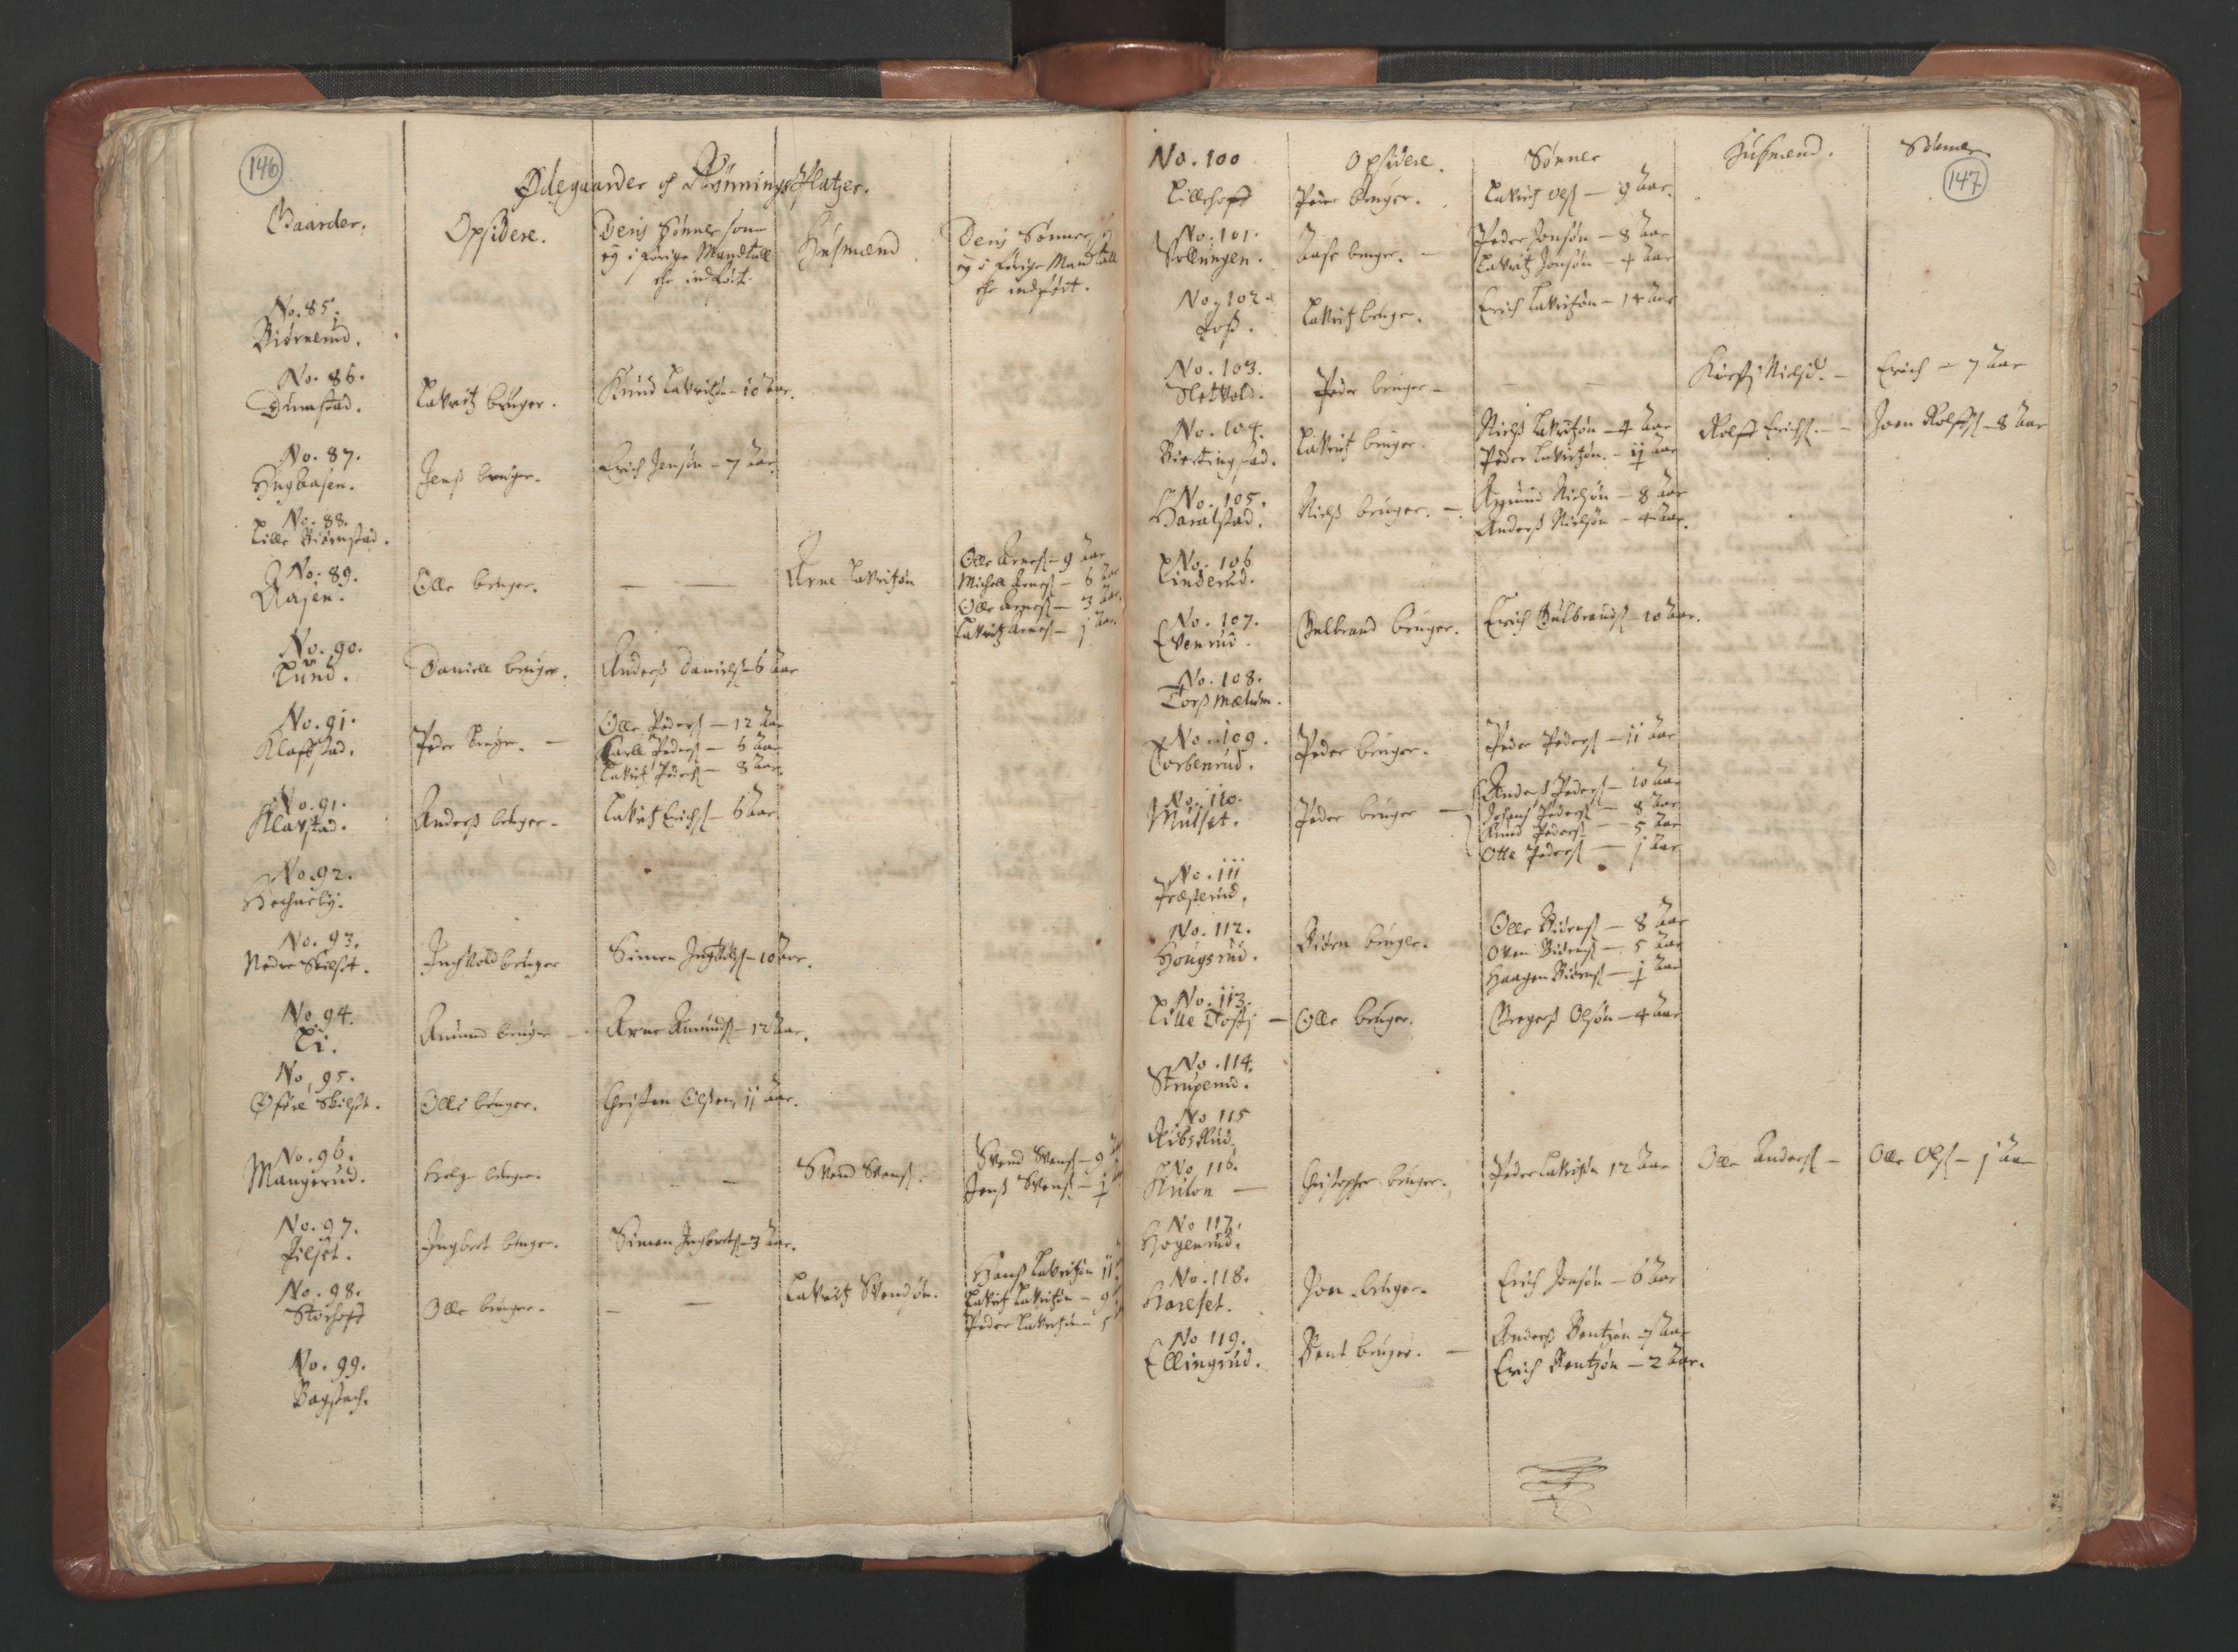 146
Ødegaarder og Rønnings Platzer.
Gaarder.
Opsidere.
Deris Sønner som
ey i forige Mandtall
ehr indført.
Husmænd
Deris Sønner
ey i forige Mandtall
ehr indført.
No. 85.
Biørnerud.
No. 86.
Dumstad.
Lauritz bruger.
Knud Lauritzsøn – 10 Aar.
No. 87.
Hugaasen.
Jenß bruger.
Erich Jensøn – 7 Aar
No. 88.
Lille Biørnstad.
No. 89.
Aasen.
Olle bruger.
Arne Lauritsøn
Olle Arneß – 9 Aar
Michell Arneß – 6 Aar
Olle Arneß – 3 Aar.
Lauritz Arneß – j Aar
No. 90.
Lund.
Daniell bruger.
Anderß Danielß – 6 Aar
No. 91.
Klaffstad.
Peder bruger. –
Olle Pederß – 12 Aar
Karll Pederß – 6 Aar
Lauritz Pederß – 8 Aar.
No. 91.
Klavstad.
Anderß bruger –
Lauritz Erichß – 6 Aar
No. 92.
No. 93.
Nedre Skilset.
Inghvold bruger
Simen – 10 Aar.
No 94.
Li.
Amund bruger –
Arne Amundß – 12 Aar.
No. 95.
Øfre Skilset.
Olle bruger.
Christen Olsen, ij Aar.
No. 96.
Mangerud.
Helge bruger.
Svend Svenß.
Svend Svenß – 9
Jenß Svenß – j
No. 97.
Pilset.
Ingbret bruger.
Simen Ingbretß – 3 Aar.
No. 98.
Storhoff
Olle bruger.
Lauritz Svendsøn.
Hanß Lauritzøn ij
Lauritz Lauritzøn – 9
Peder Lauritzøn – 5
No. 99.
147
No. 100
Opsidere.
Sønner
Husmænd.
Sønner
Lillehoff
Peder bruger.
Lauritz Olß – 9 Aar.
No. 101.
Sollungen.
Aase bruger. –
Peder Jonsøn – 8 Aar
Lauritz Jonsøn – 4 Aar
No. 102.
Foß.
Lauritz bruger.
Erich Lauritzøn – 14 Aar
No. 103.
Sletvold.
Peder bruger –
Nielsd. –
Erich – 7 Aar
No. 104.
Biertingstad.
Lauritz bruger.
Nielß Lauritzøn – 4 Aar
Peder Lauritzøn – ij Aar
Rolff Erichß. –
Joen Rolffß – 8 Aar
No. 105.
Haralstad.
Nielß bruger. –
Amund Nielsøn – 8 Aar
Anderß Nielsøn – 4 Aar.
No. 106
Linderud.
No. 107.
Evenrud.
Gulbrand bruger.
Erich Gulbrandß – 10 Aar.
No. 108.
Torß mælum.
No. 109.
Torbenrud.
Peder bruger.
Peder Pederß – 11 Aar
No. 110.
Mulset.
Peder bruger –
Anders Pederß – 10 Aar
Johanß Pederß – 8 Aar
Knud Pederß – 5 Aar
Otte Pederß – j Aar
No. 111
Præsterud.
No. 112.
Hougsrud.
Biørn bruger.
Olle Biørnß – 8 Aar
Oven Biørnß – 5 Aar
Haagen Biørnß – j Aar
No. 113.
Lille Tosti –
Olle bruger.
Gregerß Olsøn – 4 Aar
No. 114.
Struperud.
No 115
Ribsrud.
No 116.
Kulon –
Christopher bruger.
Peder Lauritzøn 12 Aar
Olle Anderß –
Olle Olß – j Aar
No 117.
Hogenrud.
No. 118.
Hareset.
Jon bruger.
Erich Jonsøn – 6 Aar
No 119.
Ellingrud.
Bent bruger. –
Anderß Bentzøn – 7 Aar
Erich Bentzøn – 2 Aar.